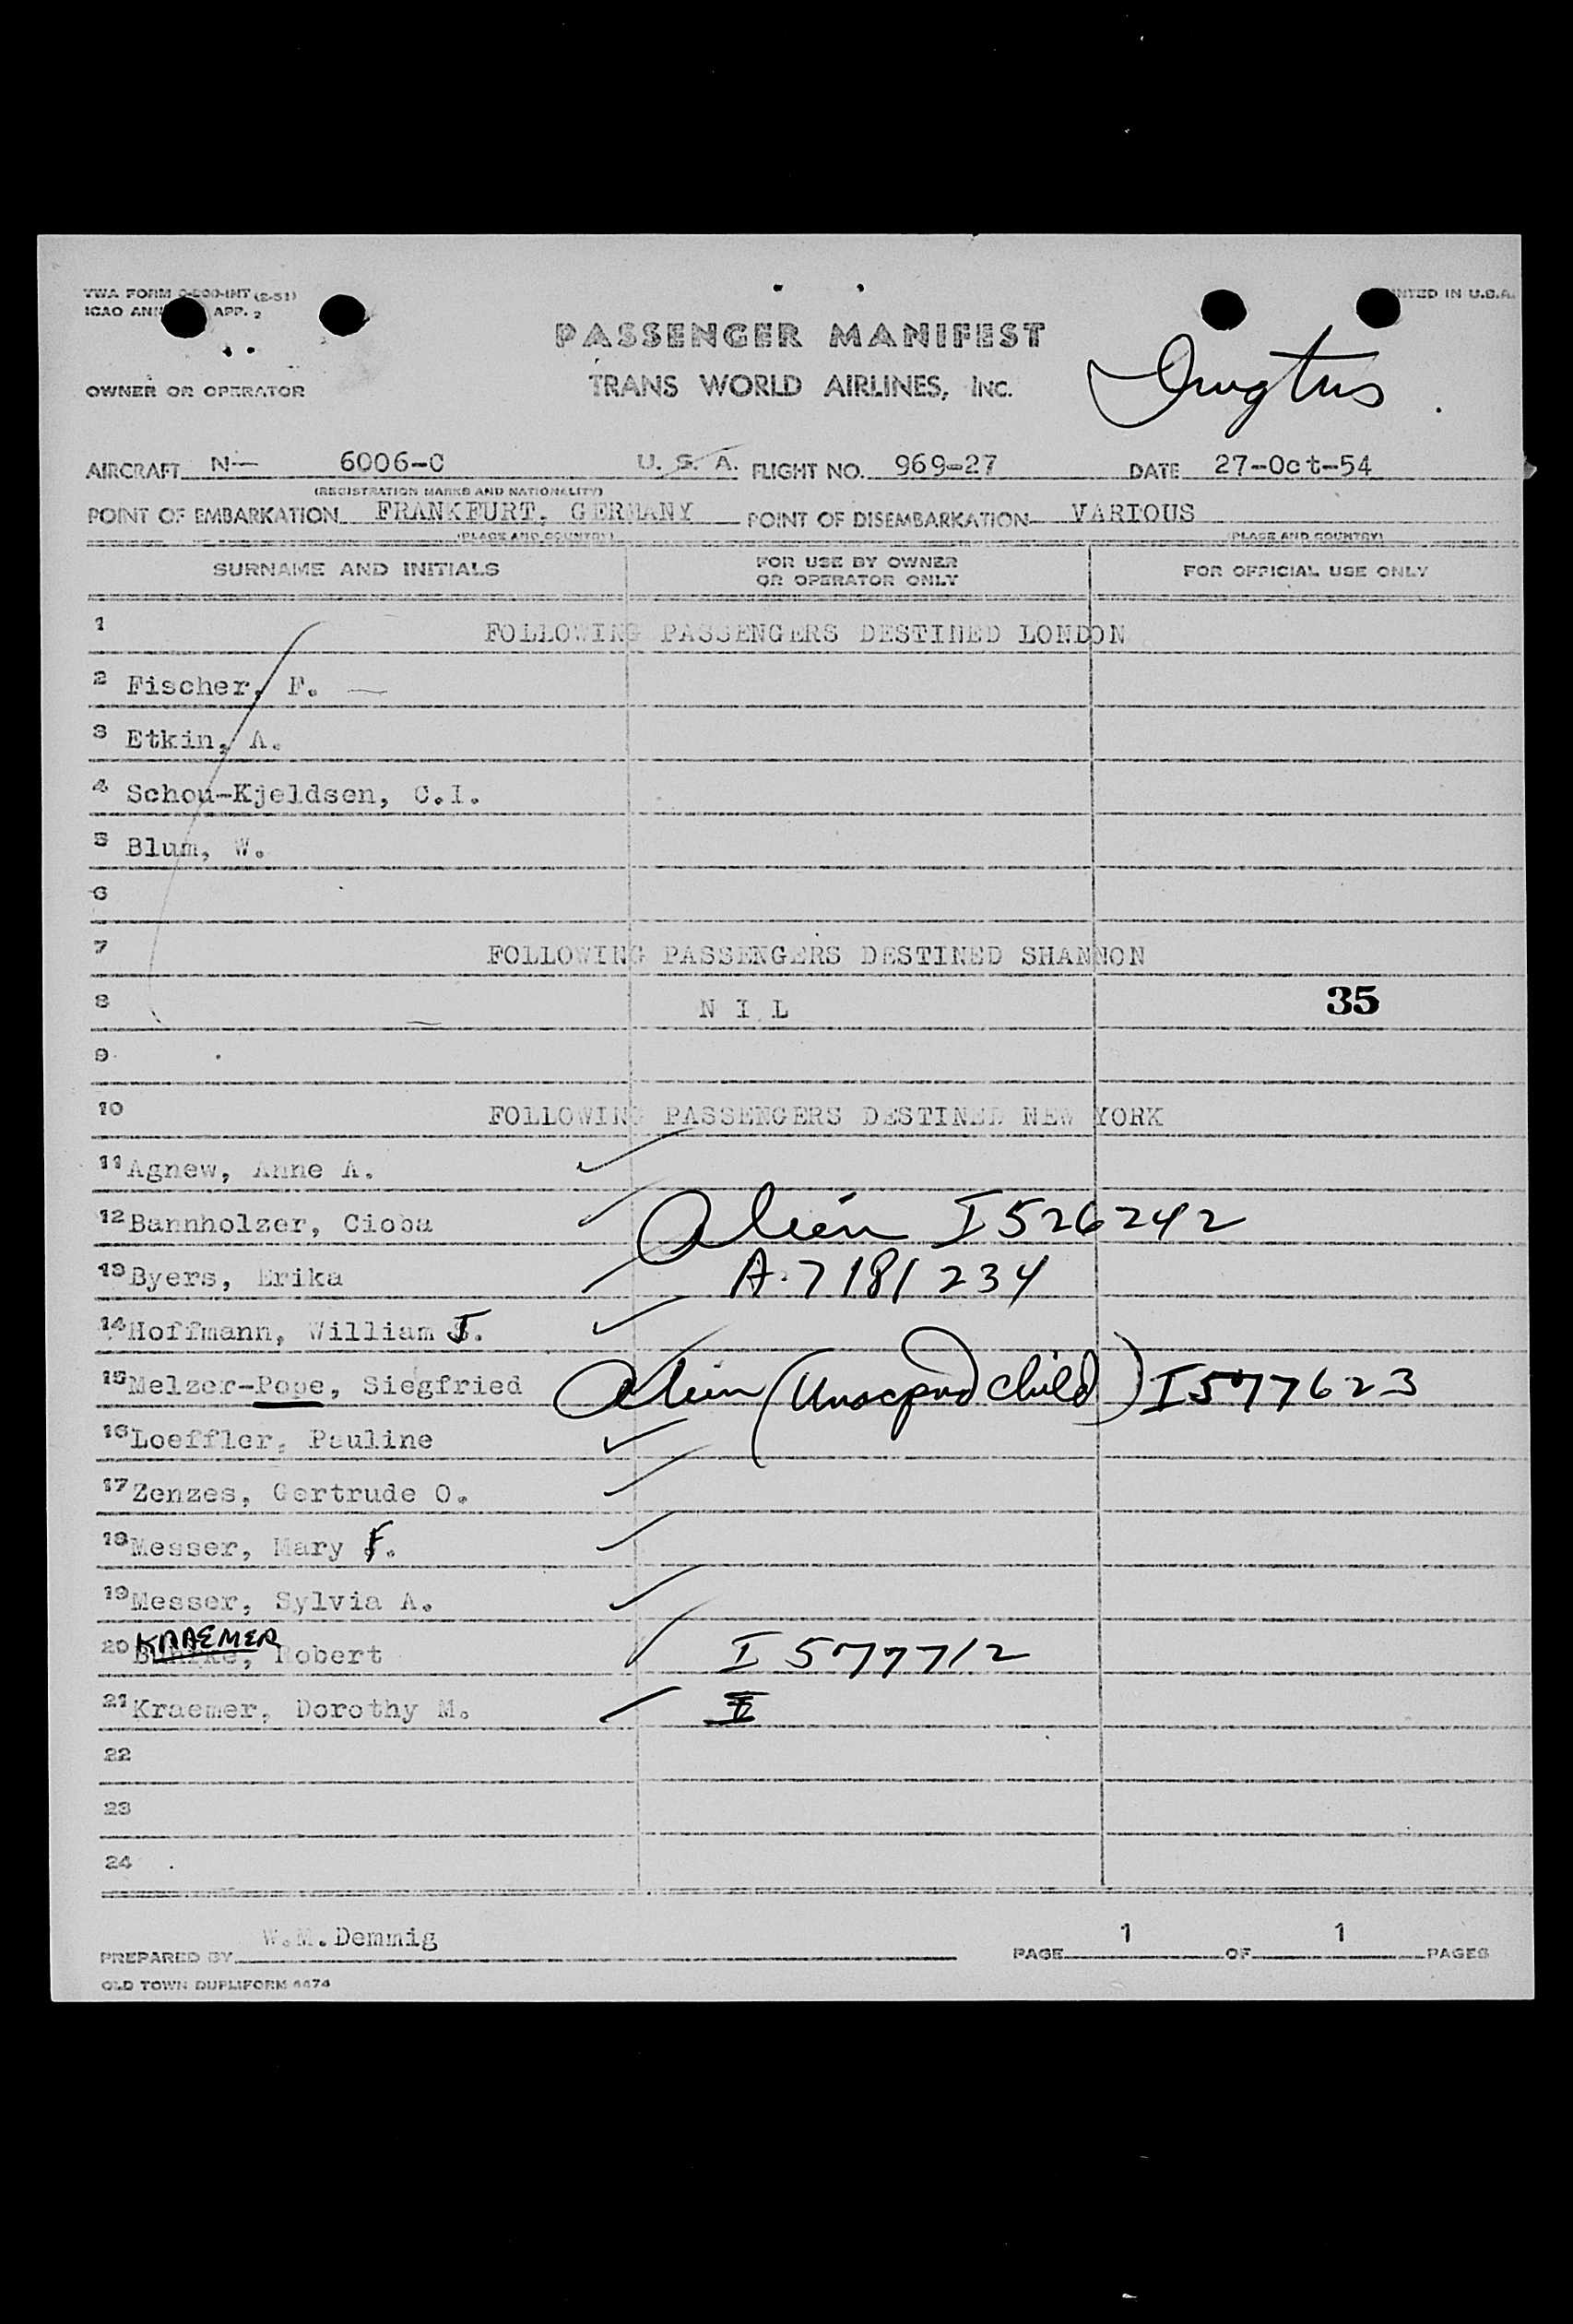 TWA FORM O-200-INT (2-51)
ICAO ANN APP. 2
NTED IN U.S.A.
PASSENGER MANIFEST
OWNER OR OPERATOR
TRANS WORLD AIRLINES, INC.
AIRCRAFT N- 6006-C U. S. A. FLIGHT NO. 969-27 DATE 27-Oct-54
(REGISTRATION MARKS AND NATIONALITY)
POINT OF EMBARKATION FRANKFURT, GERMANY POINT OF DISEMBARKATION VARIOUS
(PLACE AND COUNTRY) (PLACE AND COUNTRY)
SURNAME AND INITIALS FOR USE BY OWNER OR OPERATOR ONLY FOR OFFICIAL USE ONLY
1 FOLLOWING PASSENGERS DESTINED LONDON
2 Fischer, F.
3 Etkin, A.
4 Schou-Kjeldsen, C.I.
5 Blum, W.
6
7 FOLLOWING PASSENGERS DESTINED SHANNON
8 N I L 35
9
10 FOLLOWING PASSENGERS DESTINED NEW YORK
11 Agnew, Anne A.
12 Bannholzer, Cioba Alien I526242
13 Byers, Erika A-7181234
14 Hoffmann, William J.
15 Melzer-Pope, Siegfried Alien ( child) I577623
16 Loeffler, Pauline
17 Zenzes, Gertrude O.
18 Messer, Mary F.
19 Messer, Sylvia A.
20 KRAEMER, Robert I 577712
21 Kraemer, Dorothy M.
22
23
24
PREPARED BY W.M. Demmig PAGE 1 OF 1 PAGES
OLD TOWN DUPLIFORM 4474